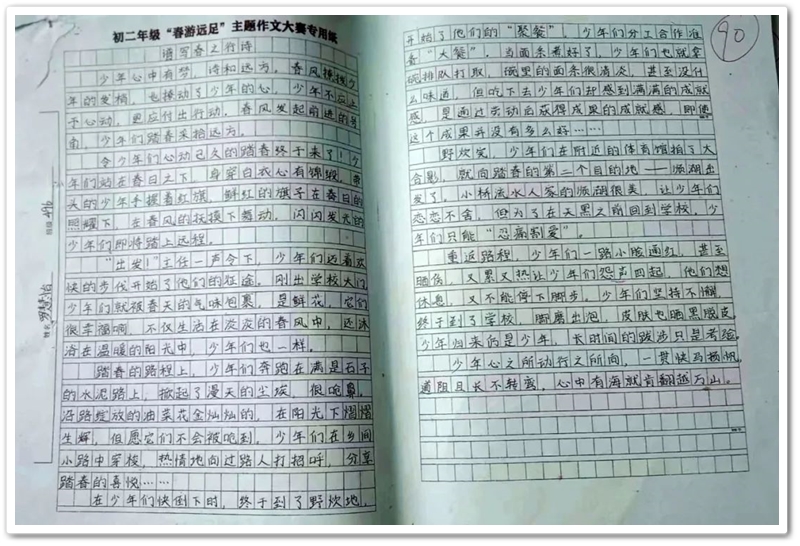 初二年级“春游远足”主题作文大赛专用纸
谱写春之行诗
少年心中有梦，诗和远方。春风撩拨少
年的发梢，也撩动了少年的心，少年不应止
于心动，更应付出行动，春风发起前进的号
角，少年们踏春来拾远方。
令少年们心动已久的踏春终于来了！少
年们站在春日之下，身穿白衣心有锦缎，带
头的少年手握着红旗，鲜红的旗子在春日的
照耀下，在春风的抚摸下舞动，闪闪发光的
少年们即将踏上远程。
“出发！”主任一声令下，少年们迈着欢
快的步伐开始了他们的征途。刚出学校大门，
少年们就被春天的气味包裹，是鲜花，它们
很幸福啊，不仅生活在淡淡的春风中，还沐
浴在温暖的阳光中，少年们也一样。
踏春的路程上，少年们奔跑在满是石子
的水泥路上，掀起了漫天的尘埃，很呛鼻。
沿路绽放的油菜花金灿灿的，在阳光下熠熠
生辉，但愿它们不会被呛到。少年们在乡间
小路中穿梭，热情地向过路人打招呼，分享
踏春的喜悦……
在少年们快倒下时，终于到了野炊地，
班级 496
姓名
开始了他们的“聚餐”，少年们分工合作准
备“大餐”。当面条煮好了，少年们也就拿
碗排队打取，碗里的面条很清淡，甚至没什
么味道，但吃下去少年们却感到满满的成就
感，是通过劳动后获得成果的成就感，即使
这个成果并没有多么好……
野炊完，少年们在附近的体育馆拍了大
合影，就向踏春的第二个目的地——颐湖出
发了。小桥流水人家的颐湖很美，让少年们
恋恋不舍，但为了在天黑之前回到学校，少
年们只能“忍痛割爱”。
重返路程，少年们一路小脸通红，甚至
晒伤，又累又热让少年们怨声四起，他们想
休息，又不能停下脚步。少年们坚持不懈，
终于到了学校，脚磨出泡，皮肤也晒黑脱皮，
少年归来仍是少年，长时间的跋涉只是考验。
少年心之所动行之所向，一贯快马扬帆，
道阻且长不转弯，心中有海就肯翻越万山。
90